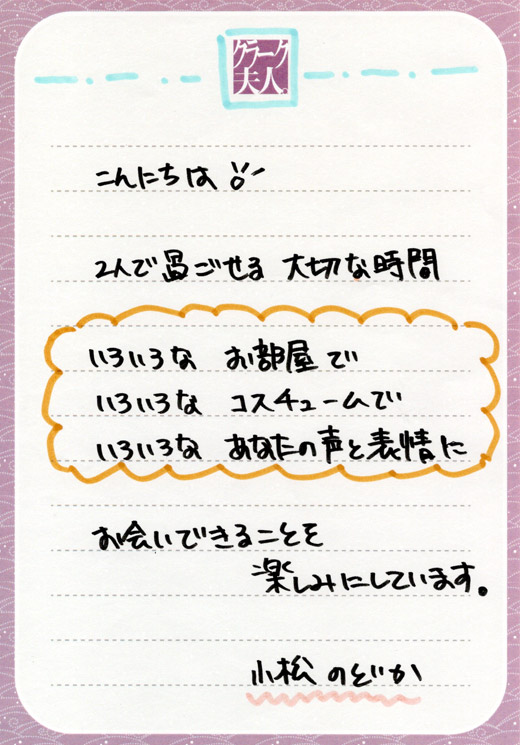 クラーク
夫人。
こんにちは!!
2人で過ごせる 大切な時間
いろいろな お部屋で
いろいろな コスチュームで
いろいろな あなたの声と表情に
お会いできることを
楽しみにしています。
小松 のどか